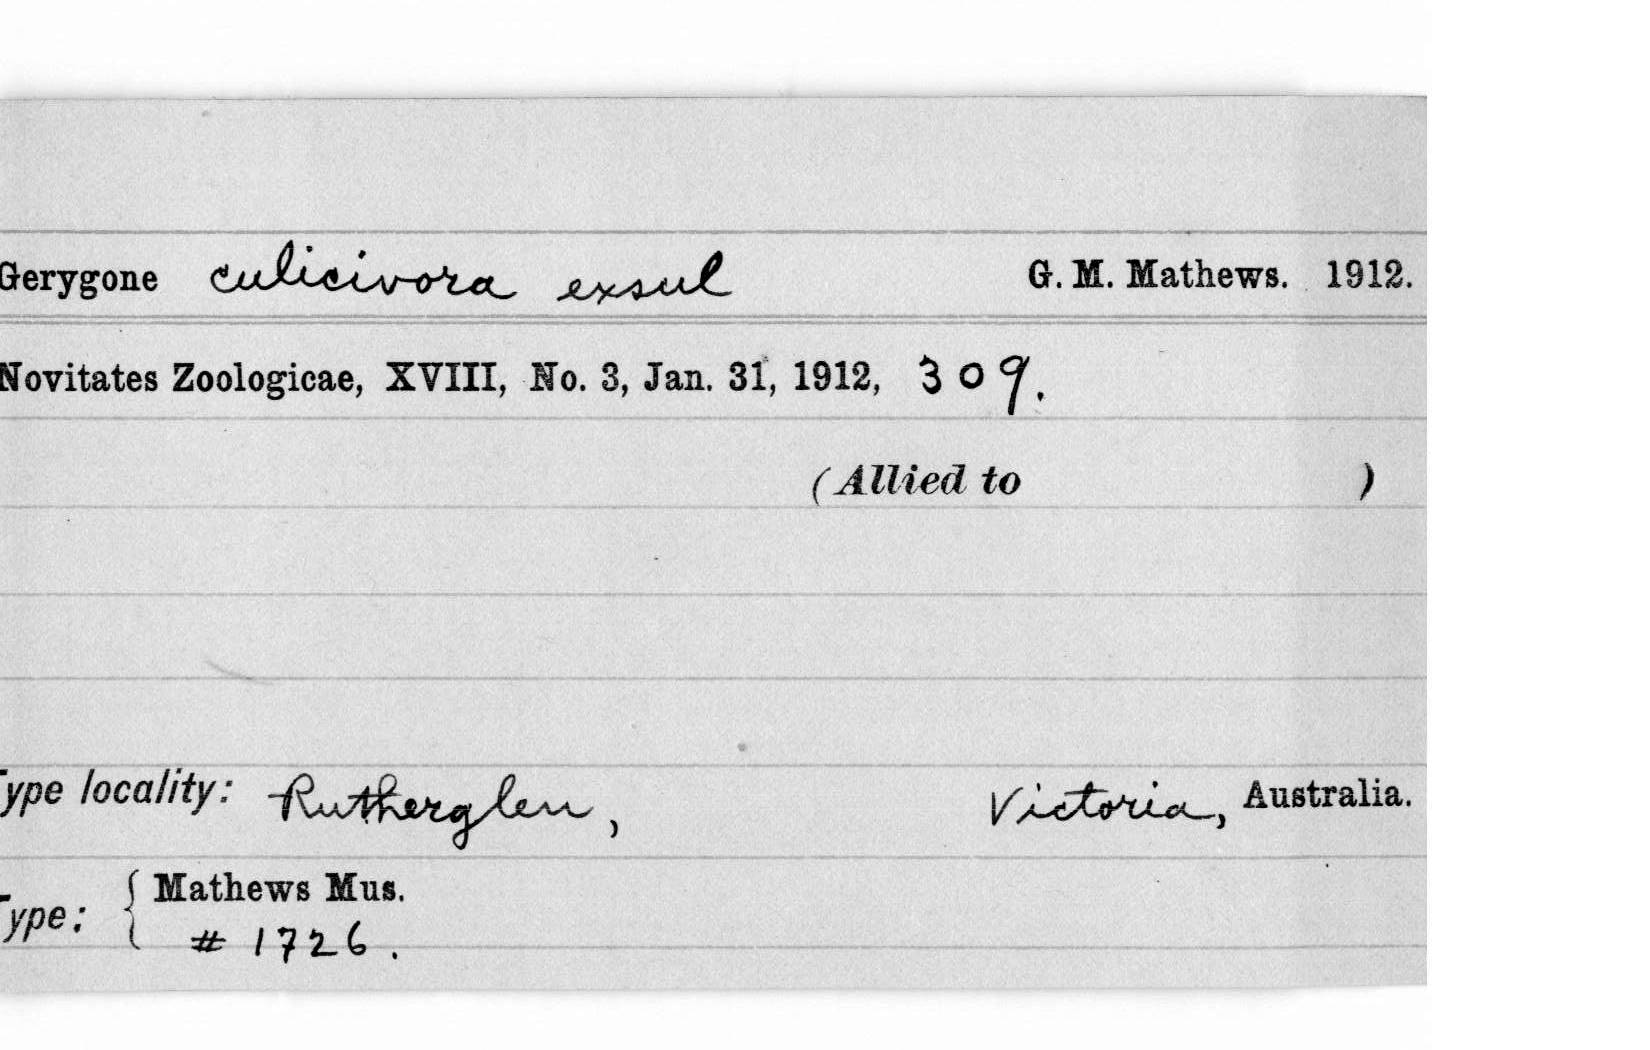 Gerygone culicivora exsul G. M. Mathews. 1912.
Novitates Zoologicae, XVIII, No. 3, Jan. 31, 1912, 309.
(Allied to )
Type locality: Rutherglen, Victoria, Australia.
Type: { Mathews Mus.
# 1726.